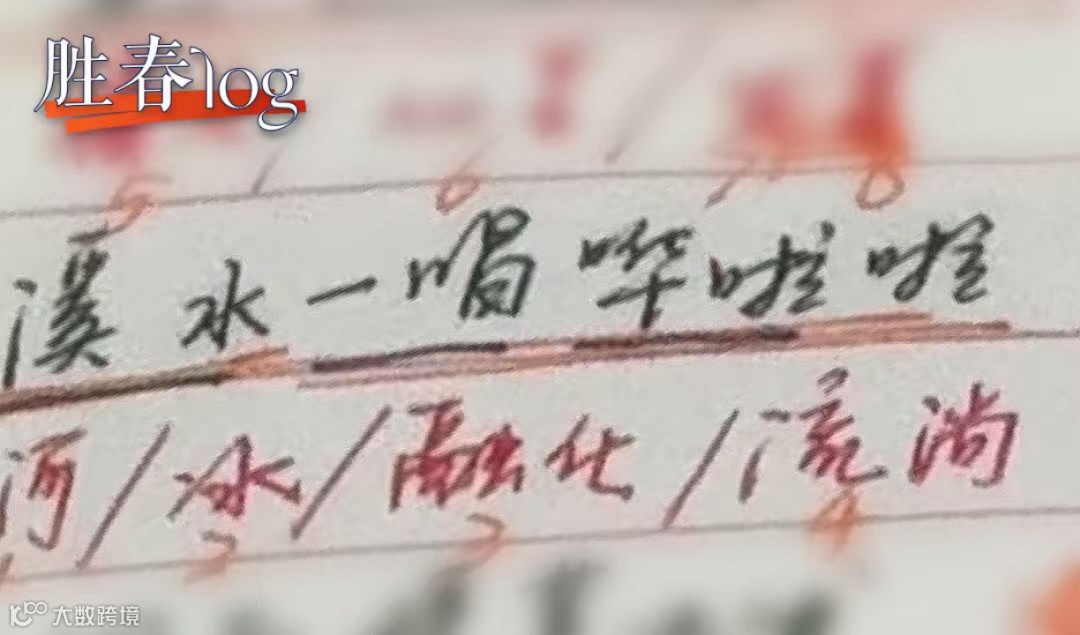 胜春log
5 6 7 8
溪水一唱哗啦啦
河/冰/融化/流淌
2 3 4
大数跨境